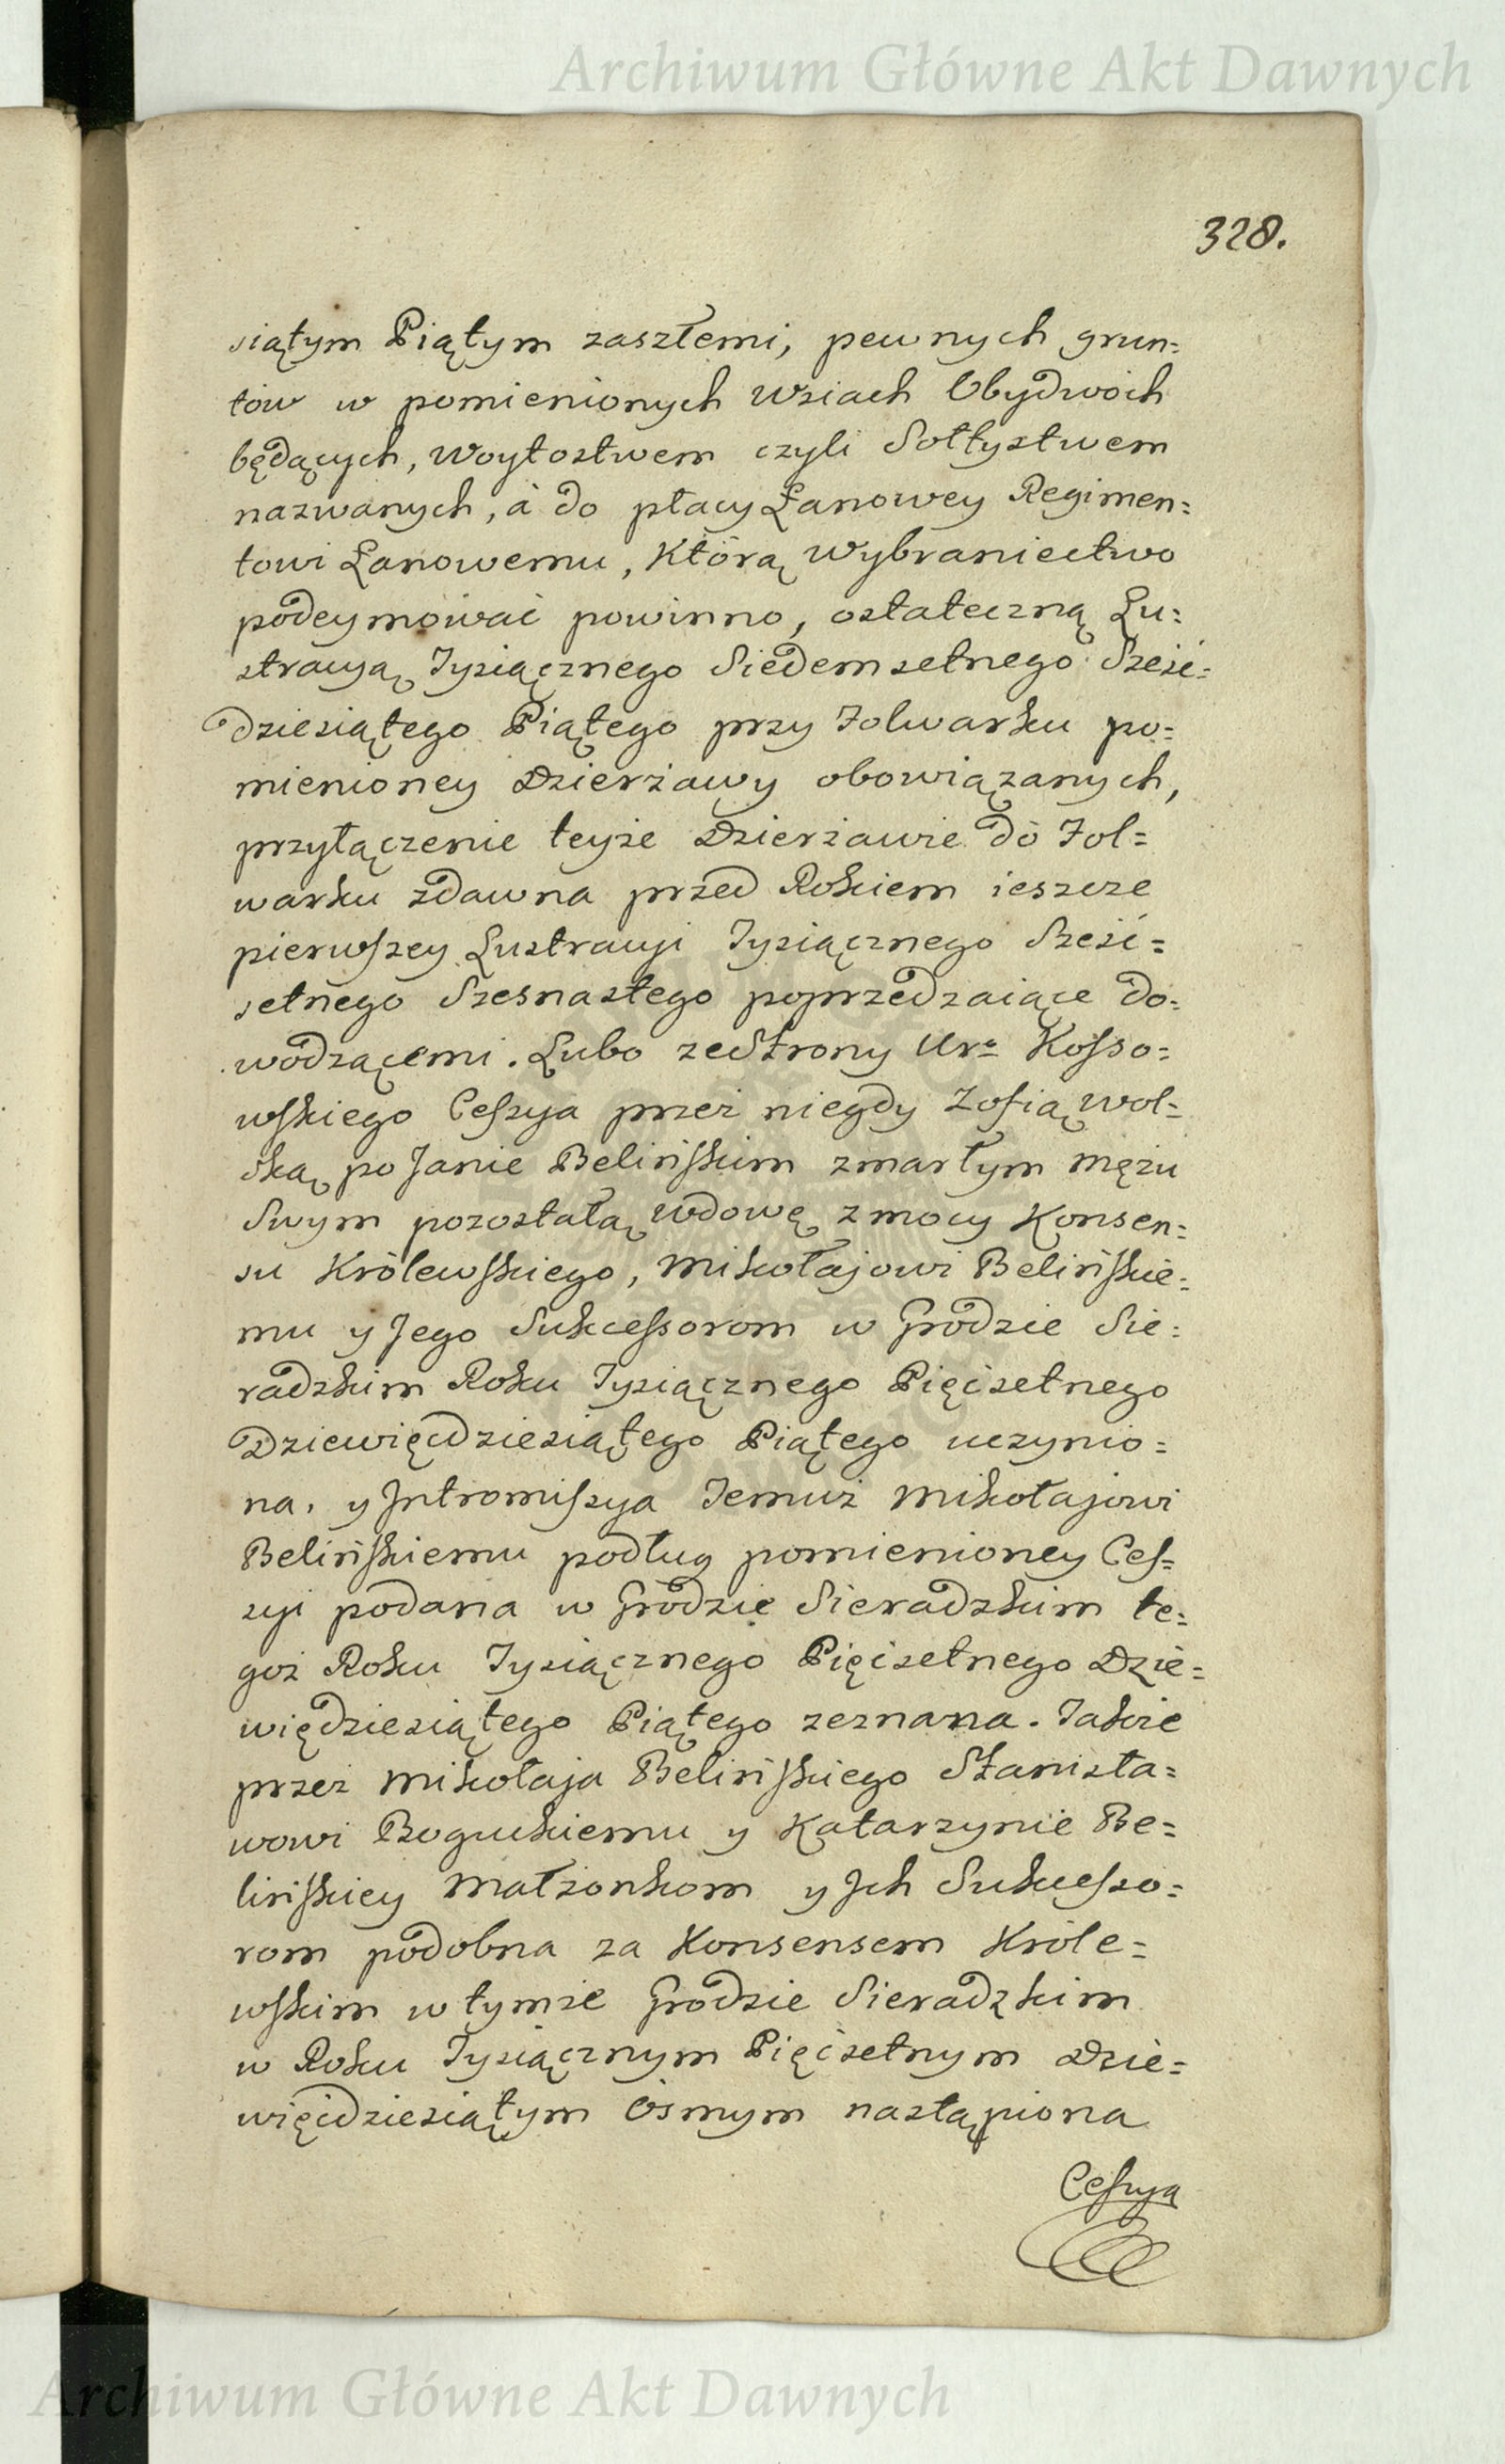 Archiwum Główne Akt Dawnych
328.
siątym Piątym zaszłemi, pewnych grun=
tów w pomienionych Wsiach Obydwóch
będących, Woytostwem czyli Sołtystwem
nazwanych, à do płacy Łanowey Regimen=
towi Łanowemu, Którą Wybraniectwo
podeymować powinno, ostateczną Lu=
stracyą Tysiącznego Siedemsetnego Sześć=
dziesiątego Piątego przy Folwarku po=
mienioney Dzierżawy obowiązanych,
przyłączenie teyże Dzierżawie do Fol=
warku zdawna przed Rokiem ieszcze
pierwszey Lustracyi Tysiącznego Sześć=
setnego Szesnastego poprzedzaiące do=
wodzącemi. Lubo ze Strony Ur° Kosso=
wskiego Cessya przez niegdy Zofią Wol=
ską po Janie Belińskim zmarłym mężu
Swym pozostałą Wdowę z mocy Konsen=
su Królewskiego, Mikołajowi Belińskie=
mu y Jego Sukcessorom w Grodzie Sie=
radzkim Roku Tysiącznego Pięćsetnego
Dziewięćdziesiątego Piątego uczynio=
na, y Intromissya Jemuż Mikołajowi
Belińskiemu podług pomienioney Ces=
syi podana w Grodzie Sieradzkim te=
goż Roku Tysiącznego Pięćsetnego Dzie=
więdziesiątego Piątego zeznana. Także
przez Mikołaja Belińskiego Stanisła=
wowi Boguckiemu y Katarzynie Be=
lińskiey Małżonkom y Ich Sukcesso=
rom podobna za Konsensem Króle=
wskim w tymże Grodzie Sieradzkim
w Roku Tysiącznym Pięćsetnym Dzie=
więćdziesiątym Ósmym nastąpiona
Cessya
Archiwum Główne Akt Dawnych